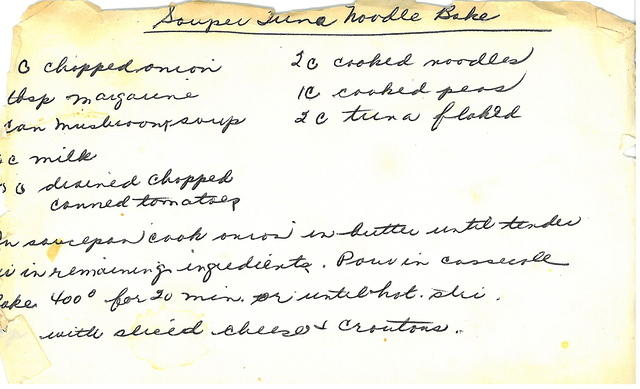 Souper Tuna Noodle Bake
C chopped onion
tbsp margarine
can mushroom soup
c milk
C drained chopped
canned tomatoes
2C cooked noodles
1C cooked peas
2C tuna flaked
In saucepan cook onion in butter until tender
in remaining ingredients. Pour in casserole
Bake 400° for 20 min. or until hot. stir.
with sliced cheese & croutons.